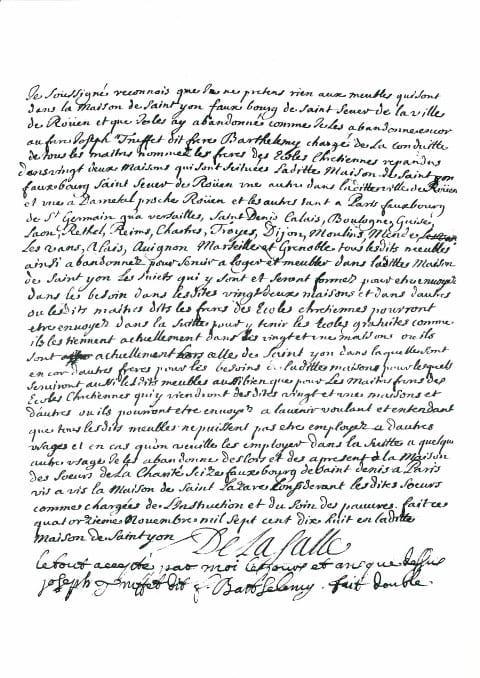 Je soussigné reconnois que je ne pretens rien aux meubles qui sont
dans la Maison de Saint yon faux bourg de Saint Sever de la ville
de Roüen et que je les ay abandonné comme je les abandonne encor
au frere Joseph Truffet dit frere Barthelemy chargé de La conduitte
de tous les maitres nommez les freres des Ecoles Chretiennes repandus
dans vingt deux Maisons qui sont scituées Laditte Maison de Saint yon
fauxbourg Saint Sever de Roüen une autre dans laditte ville de Roüen
et une a Darnetal proche Roüen et les autres tant a Paris fauxbourg
de St Germain qua versailles, Saint Denis Calais, Boulogne, Guise,
Laon, Rethel, Reims, Chartres, Troyes, Dijon, Moulins, Mende,
Les vans, Alais, Avignon Marseille et Grenoble tous lesdits meubles
ainsi abandonnez pour servir a loger et meubler dans laditte Maison
de Saint yon Les sujets qui y sont et seront formez pour etre envoyez
dans les besoin dans lesdites vingt deux maisons et dans dautres
ou lesdits maitres dits les freres des Ecoles chretiennes pourront
etre envoyez dans la suitte pour y tenir les Ecoles gratuites comme
ils les tiennent actuellement dans les vingt et une maisons ou ils
sont actuellement hors celle de Saint yon dans laquelle sont
encor dautres freres pour les besoins de laditte maison pour lesquels
serviront aussi lesdits meubles aussi bien que pour Les Maitres freres des
Ecoles Chretiennes qui y viendront desdites vingt et une maisons et
dautres ou ils pourront etre envoyez a lavenir voulant et entendant
que tous lesdits meubles ne puissent pas etre employez a dautres
usages et en cas quon veuille les employer dans la suitte a quelque
autre usage je les abandonne deslors et des apresent a la Maison
des Soeurs de La Charité scize fauxbourg de Saint denis a Paris
vis a vis la Maison de Saint Lazare considerant lesdits Soeurs
comme chargées de l'Instruction et du soin des pauvres. fait ce
quatorzieme Novembre mil sept cent dix huit en laditte
Maison de Saint yon De La Salle
le tout accepté par moi les jours et an que dessus
joseph truffet dit f. Barthelemy. fait double.